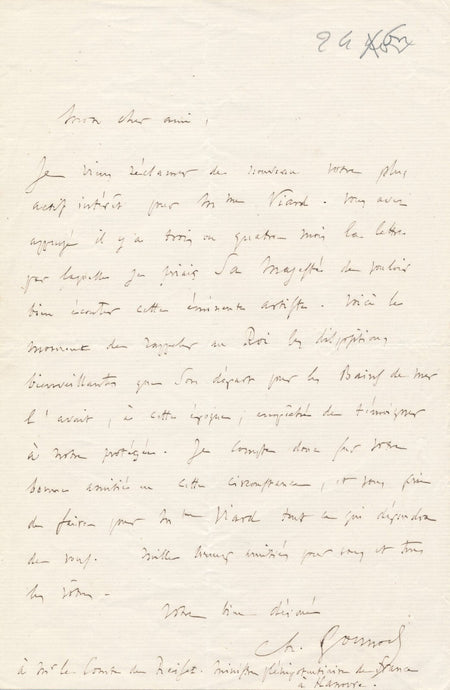 Mon cher ami,
Je viens réclamer de nouveau votre plus
actif intérêt pour Mme Viard. Vous avez
appuyé il y a trois ou quatre mois la lettre
par laquelle je priais Sa Majesté de vouloir
bien écouter cette éminente artiste. Voici le
moment de rappeler au Roi les dispositions
bienveillantes que Son départ pour les Bains de mer
l'avait, à cette époque, empêché de témoigner
à notre protégée. Je compte donc sur votre
bonne amitié en cette circonstance, et vous prie
de faire pour Mme Viard tout ce qui dépendra
de vous. Mille bonnes amitiés pour vous et tous
les vôtres.
Votre bien dévoué
Ch. Gounod
à Mr le Comte de Reiset. Ministre plénipotentiaire de France
à Hanovre.